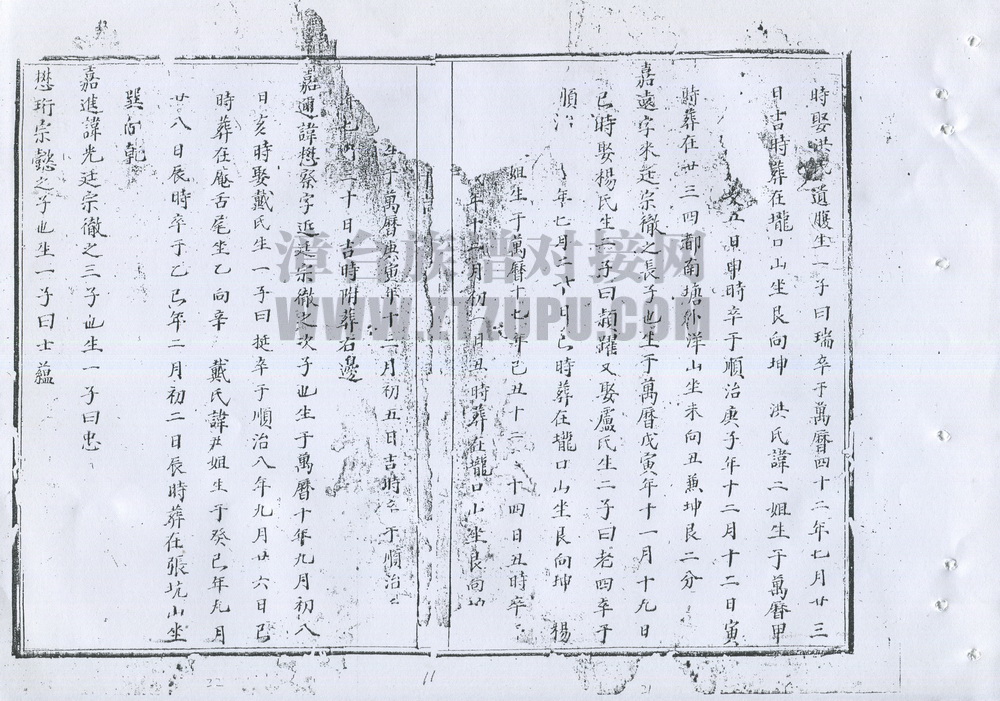 時娶洪氏道腹生一子曰瑞卒于萬曆四十二年七月廿三
日吉時葬在壠口山坐艮向坤 洪氏諱二姐生于萬曆甲
五日申時卒于順治庚子年十二月十二日寅
時葬在廿三四都南塘外洋山坐未向丑兼坤艮二分
嘉遠字來廷宗徹之長子也生于萬曆戊寅年十一月十九日
已時娶楊氏生一子曰顯躍又娶盧氏生二子曰老四卒于
順治 年七月二十日已時葬在壠口山坐艮向坤 楊
姐生于萬曆十七年己丑十二 十四日丑時卒
年十 月初一日丑時葬在壠口山坐艮向坤
生于萬曆庚寅年十二月初五日吉時卒于順治
七 二十日吉時附葬右邊
嘉通諱懋察字近廷宗徹之次子也生于萬曆十年九月初八
日亥時娶戴氏生一子曰挺卒于順治八年九月廿六日已
時葬在庵舌尾坐乙向辛 戴氏諱 姐生于癸巳年九月
廿八日辰時卒于乙巳年二月初二日辰時葬在張坑山坐
巽向乾
嘉進諱光廷宗徹之三子也生一子曰忠
懋珩宗懿之子也生一子曰士蘊
漳台族谱对接网
WWW.ZTZUPU.COM
22
11
21